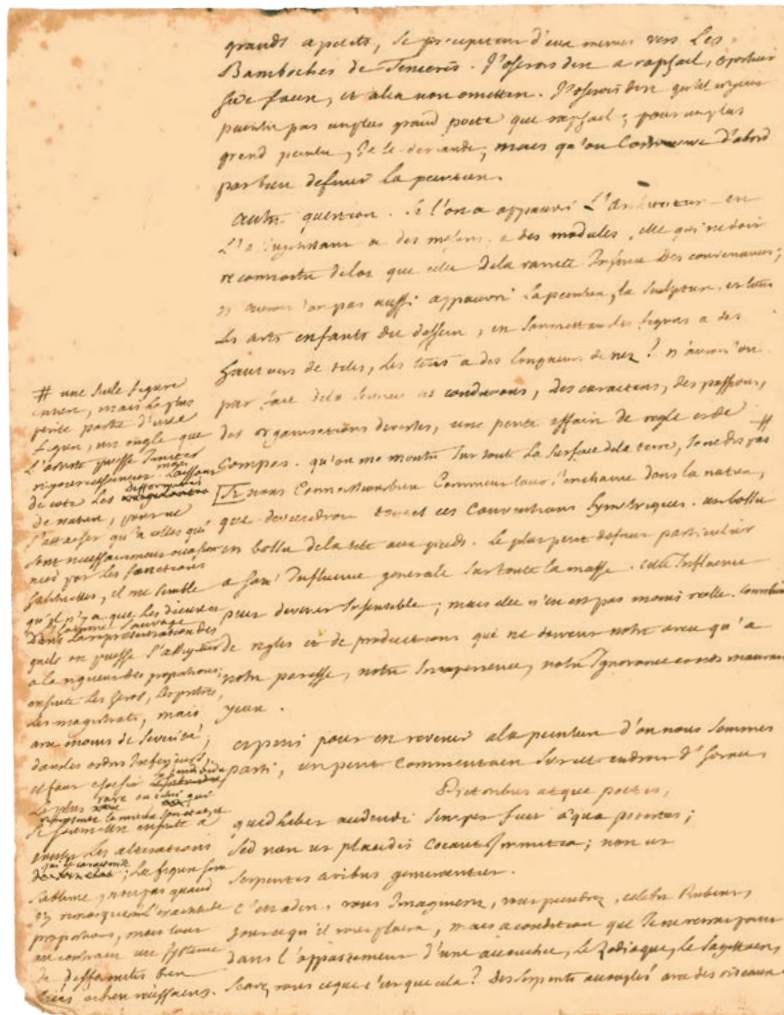 grands a petits, se precipiteront d'eux memes vers Les
Bamboches de Teniers. J'oserois dire a raphael, oportuit
haec facere, et alia non omittere. J'oserois dire qu'il n'y eut
peut etre pas un plus grand poete que raphael; pour un plus
grand peintre, je le demande; mais qu'on commence d'abord
par bien definir la peinture.
autre question. Si l'on a appauvri L'architecture en
L'assujettissant a des mesures, a des modules, elle qui ne doit
reconnoitre de loi que celle de la varieté infinie des convenances;
n'auroit on pas aussi appauvri La peinture, la Sculpture et tous
Les arts enfants du dessein, en soumettant les figures a des
hauteurs de tetes, Les tetes a des longueurs de nez? n'auroit on
pas fait de la science des conditions, des caracteres, des passions,
des organisations diverses, une petite affaire de regle et de
Compas. qu'on me montre sur toute La surface de la terre, je ne dis pas #
Si nous Connoissions bien Comment tout s'enchaine dans la nature,
que deviendroient toutes ces Conventions symetriques. un bossu
est bossu de la tete aux pieds. Le plus petit defaut particulier
a son influence generale sur toute la masse. cette influence
peut devenir insensible; mais elle n'en est pas moins reelle. Combien
de regles et de productions qui ne doivent notre aveu qu'a
notre paresse, notre inexperience, notre ignorance et nos mauvais
yeux.
et puis pour en revenir a la peinture d'ou nous sommes
parti, un petit Commentaire sur cet endroit d'horace,
Pictoribus atque poetis,
quidlibet audendi semper fuit aequa potestas;
Sed non ut placidis coeant immitia; non ut
Serpentes avibus geminentur.
C'est a dire, vous imaginerez, vous peindrez, celebre Rubens,
tout ce qu'il vous plaira, mais a condition que je ne verrai point
dans l'appartement d'une accouchée, Le Zodiaque, Le Sagittaire,
Scavez vous ce que c'est que cela? Des serpents accouplés avec des oiseaux.
# une seule figure
entiere, mais La plus
petite partie d'une
figure, un ongle que
L'artiste puisse imiter
rigoureusement mais Laissant
de coté Les difformités
de nature, pour ne
s'attacher qu'a celles qui
sont necessairement occasion
nées par les fonctions
habituelles, il me semble
qu'il n'y a que Les dieux et
l'homme sauvage
dans la representation des
quels on puisse s'assujettir
a la rigueur des proportions;
ensuite Les heros, Les pretres,
Les magistrats, mais
avec moins de severité;
dans les ordres inferieurs,
il faut choisir l'individu
Le plus rare ou celui qui
represente le mieux son etat et
se soumettre ensuite a
toutes Les alterations
qui le caracterisent; La figure sera
sublime, non pas quand
j'y remarquerai L'exactitude
proportions, mais tout
au contraire un systeme
de difformités bien
liées et bien necessaires.